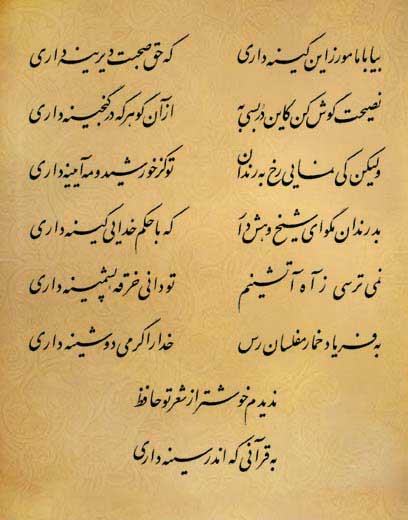 بیا با ما مورز این کینه داری که حق صحبت دیرینه داری
نصیحت گوش کن کاین در بسی به از آن گوهر که در گنجینه داری
ولیکن کی نمایی رخ به رندان تو کز خورشید و مه آیینه داری
بد رندان مگو ای شیخ و هش دار که با حکم خدایی کینه داری
نمی ترسی ز آه آتشینم تو دانی خرقه پشمینه داری
به فریاد خمار مفلسان رس خدا را گر می دوشینه داری
ندیدم خوشتر از شعر تو حافظ
به قرآنی که اندر سینه داری